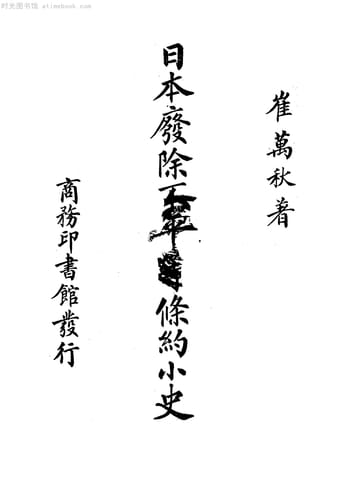 时光图书馆 - etimebook.com
崔萬秋著
日本廢除不平等條約小史
商務印書館發行